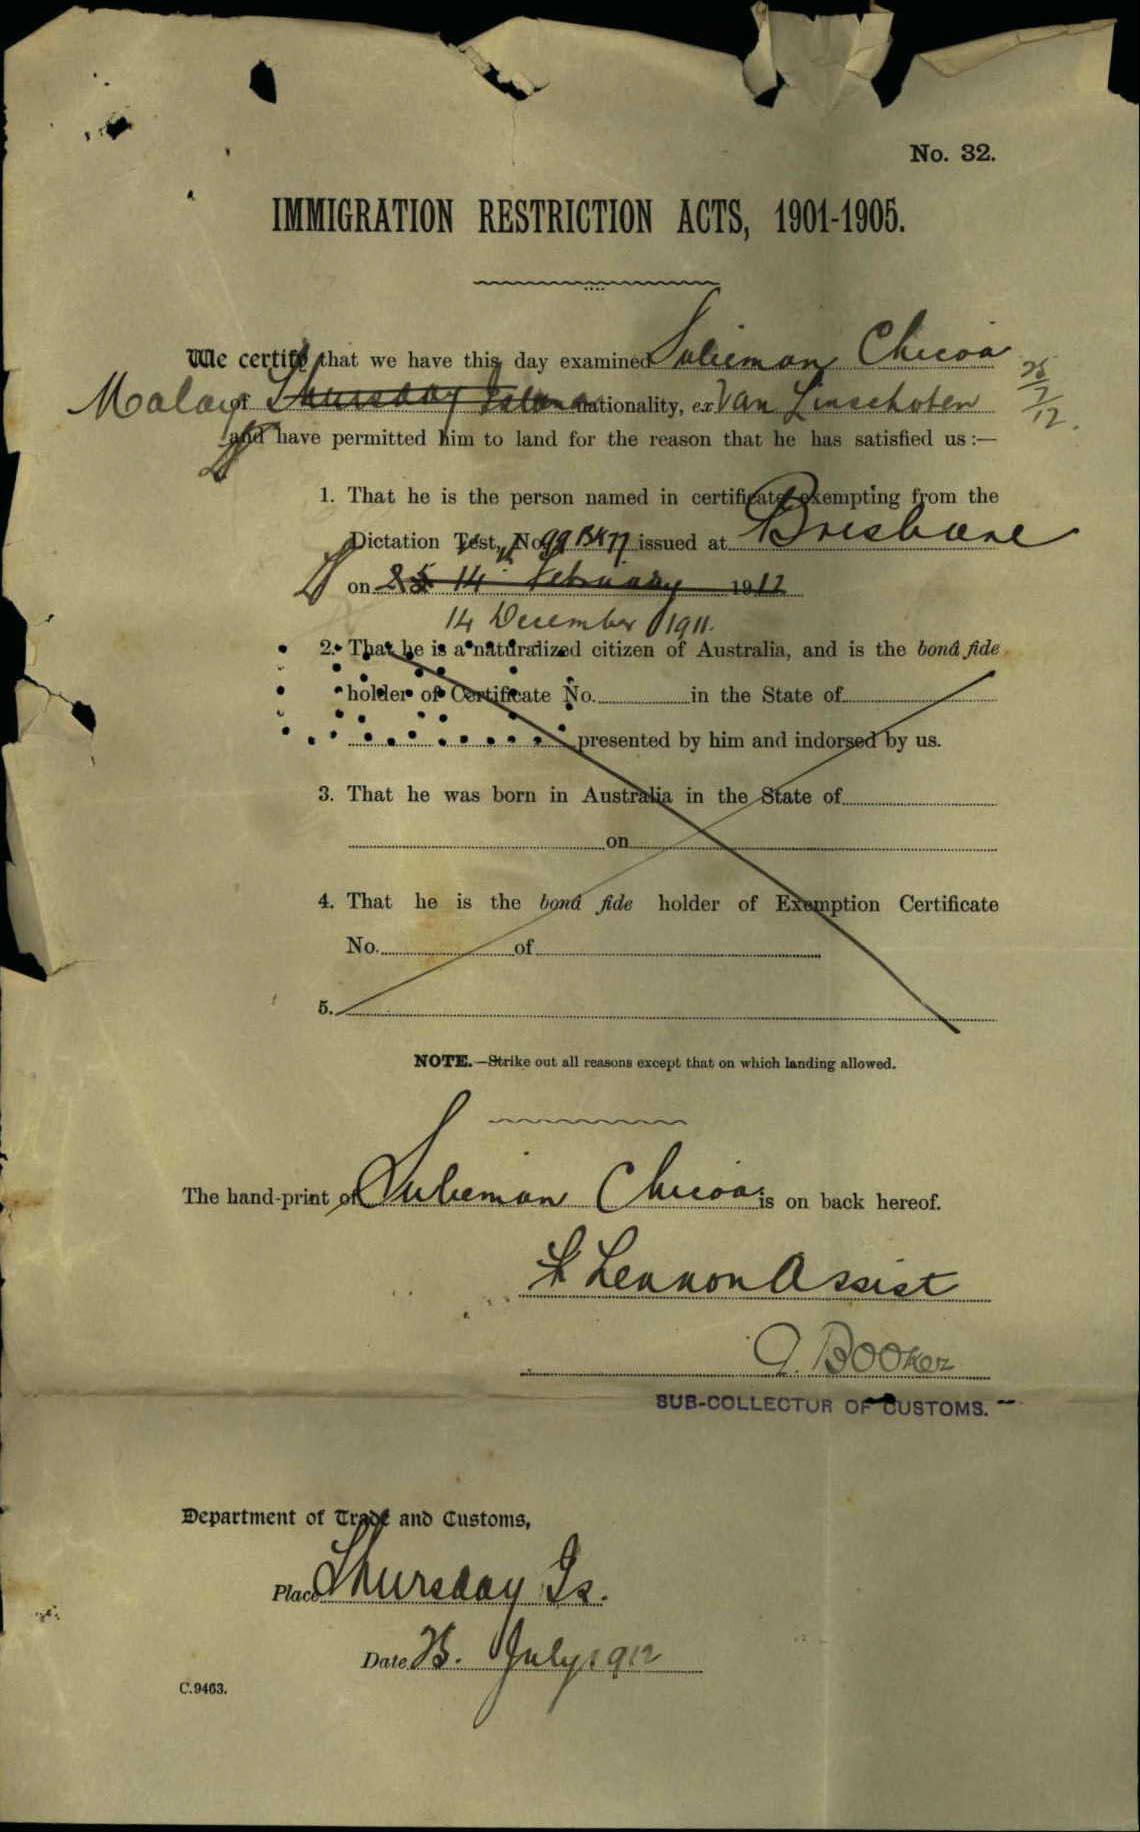 No. 32.
IMMIGRATION RESTRICTION ACTS, 1901-1905.
We certify that we have this day examined Sulieman Chicoa
Malay of Thursday Island nationality, ex Van Linschoten 25/7/12.
and have permitted him to land for the reason that he has satisfied us:—
1. That he is the person named in certificate exempting from the
Dictation Test, No. 99 BK 77 issued at Brisbane
on 14 February 1912
14 December 1911.
2. That he is a naturalized citizen of Australia, and is the bonâ fide
holder of Certificate No. in the State of
presented by him and indorsed by us.
3. That he was born in Australia in the State of
on
4. That he is the bonâ fide holder of Exemption Certificate
No. of
5.
NOTE.—Strike out all reasons except that on which landing allowed.
The hand-print of Sulieman Chicoa is on back hereof.
Lennon Assist
G. Booker
SUB-COLLECTOR OF CUSTOMS.
Department of Trade and Customs,
Place Thursday Is.
Date 25. July 1912
C.9463.